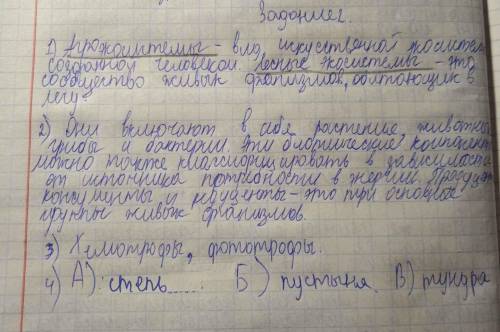 Задание 2.
1) Агроэкоситемы - вид искуственной экосистем
созданной человеком. Лесные экосистемы - это
сообщество живых организмов, обитающих в
лесу.
2) Они включают в себя растение, животны
грибы и бактерии. Эти биотические компонент
можно также классифицировать в зависимости
от источника потребности в энергии. Продуцен
консументы и редуценты - это три основные
группы живых организмов.
3) Хемотрофы, фототрофы.
4) А) степь...... Б) пустыня. В) тундра